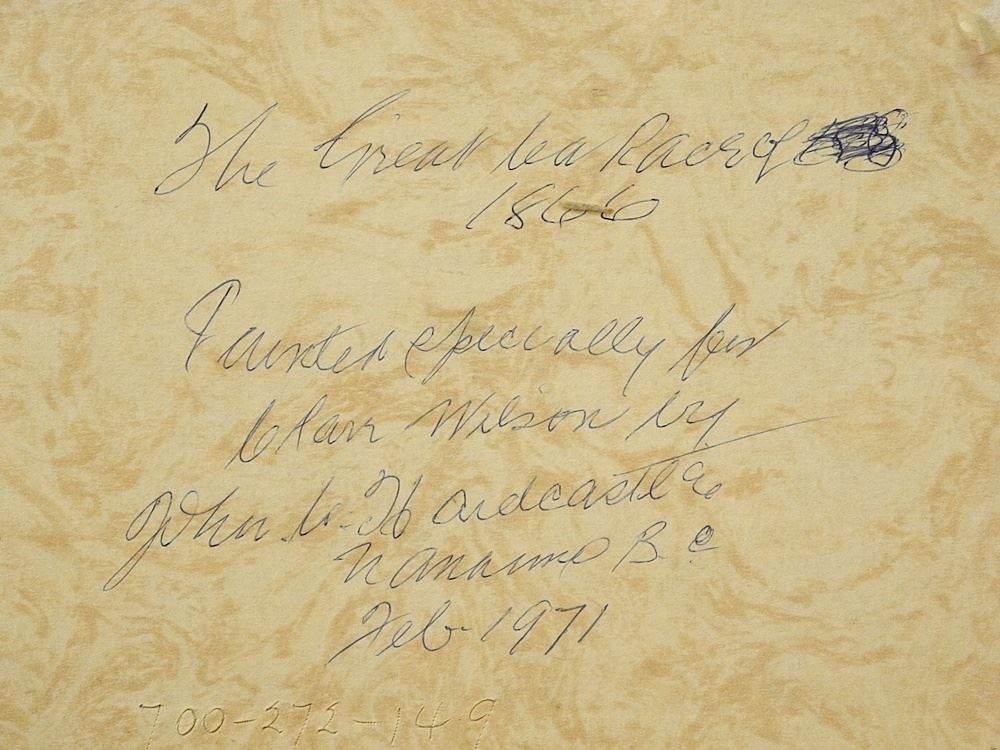 The Great tea Race of
1866
Painted specially for
Wilson by
John W. Hardcastle
Nanaimo B.C
Feb-1971
700-272-149